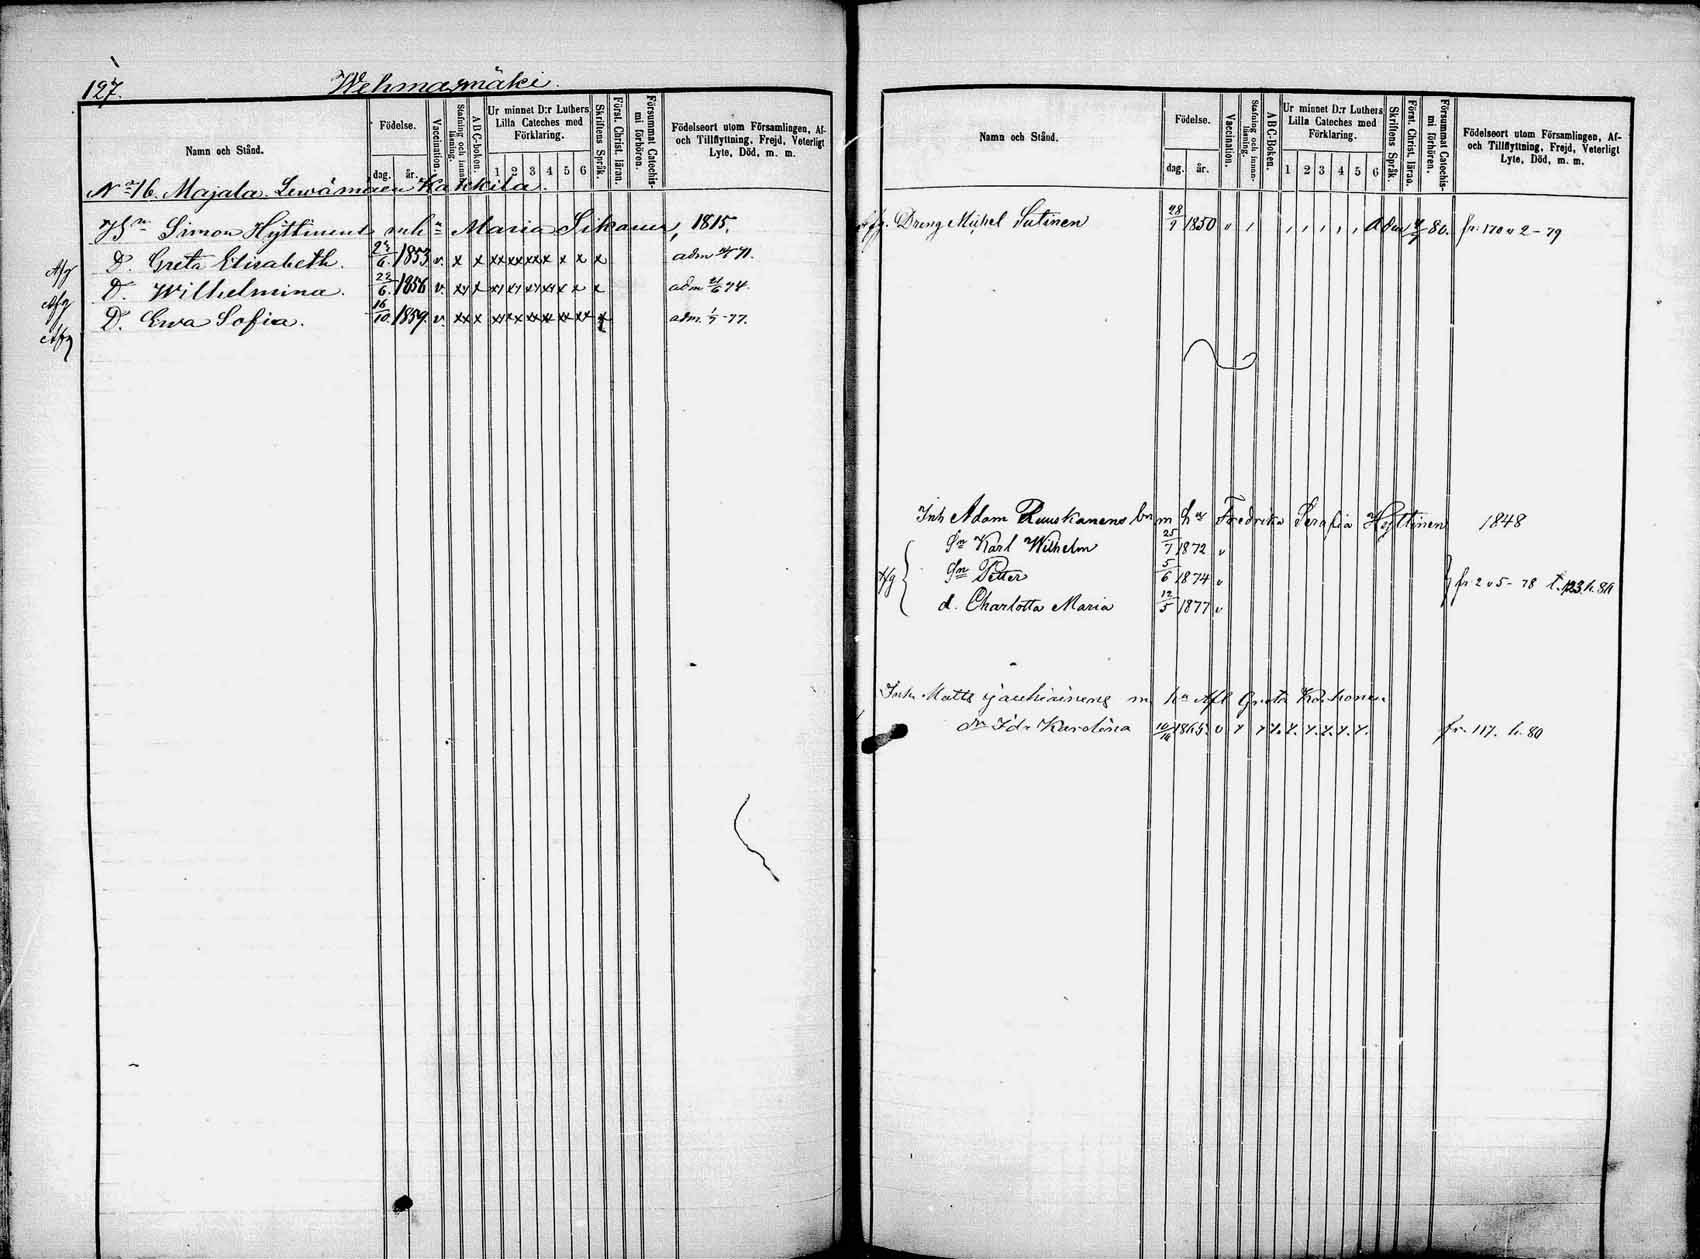 127.
Wehmasmäki.
Namn och Stånd.
Födelse.
dag. år.
Vaccination.
Stafning och innan-läsning.
ABC-Boken.
Ur minnet D:r Luthers Lilla Cateches med Förklaring.
1 2 3 4 5 6
Skriftens Språk.
Först. Christ. läran.
Försummat Catechis-mi förhören.
Födelseort utom Församlingen, Af- och Tillflyttning, Frejd, Veterligt Lyte, Död, m. m.
No 16. Majala Kakkila.
Bn Simon Hyttinens mhn Maria Sikanen, 1815.
Afg D. Greta Elisabeth. 1853 v. x x xx xx xx x x x x adm 71.
Afg D. Wilhelmina. 22/6. 1856 v. adm 74.
Afg D. Ewa Sofia. 16/10. 1859. v. xx x adm. -77.
Namn och Stånd.
Födelse.
dag. år.
Vaccination.
Stafning och innan-läsning.
ABC-Boken.
Ur minnet D:r Luthers Lilla Cateches med Förklaring.
1 2 3 4 5 6
Skriftens Språk.
Först. Christ. läran.
Försummat Catechis-mi förhören.
Födelseort utom Församlingen, Af- och Tillflyttning, Frejd, Veterligt Lyte, Död, m. m.
Afg. Dreng Michel Sutinen 1850 v 80. fr. 170 v 2-79
Inh Adam Ruuskanens m hu Fredrika Serafia Hyttinen 1848
Sn Karl Wilhelm 25/7 1872 v
Afg Sn Petter 5/6 1874 v fr. 2 v 5-78
d. Charlotta Maria 12/5 1877 v
Inh. Matts m hu Afl Greta
dr Ida Karolina 1865. v fr. 117. h. 80